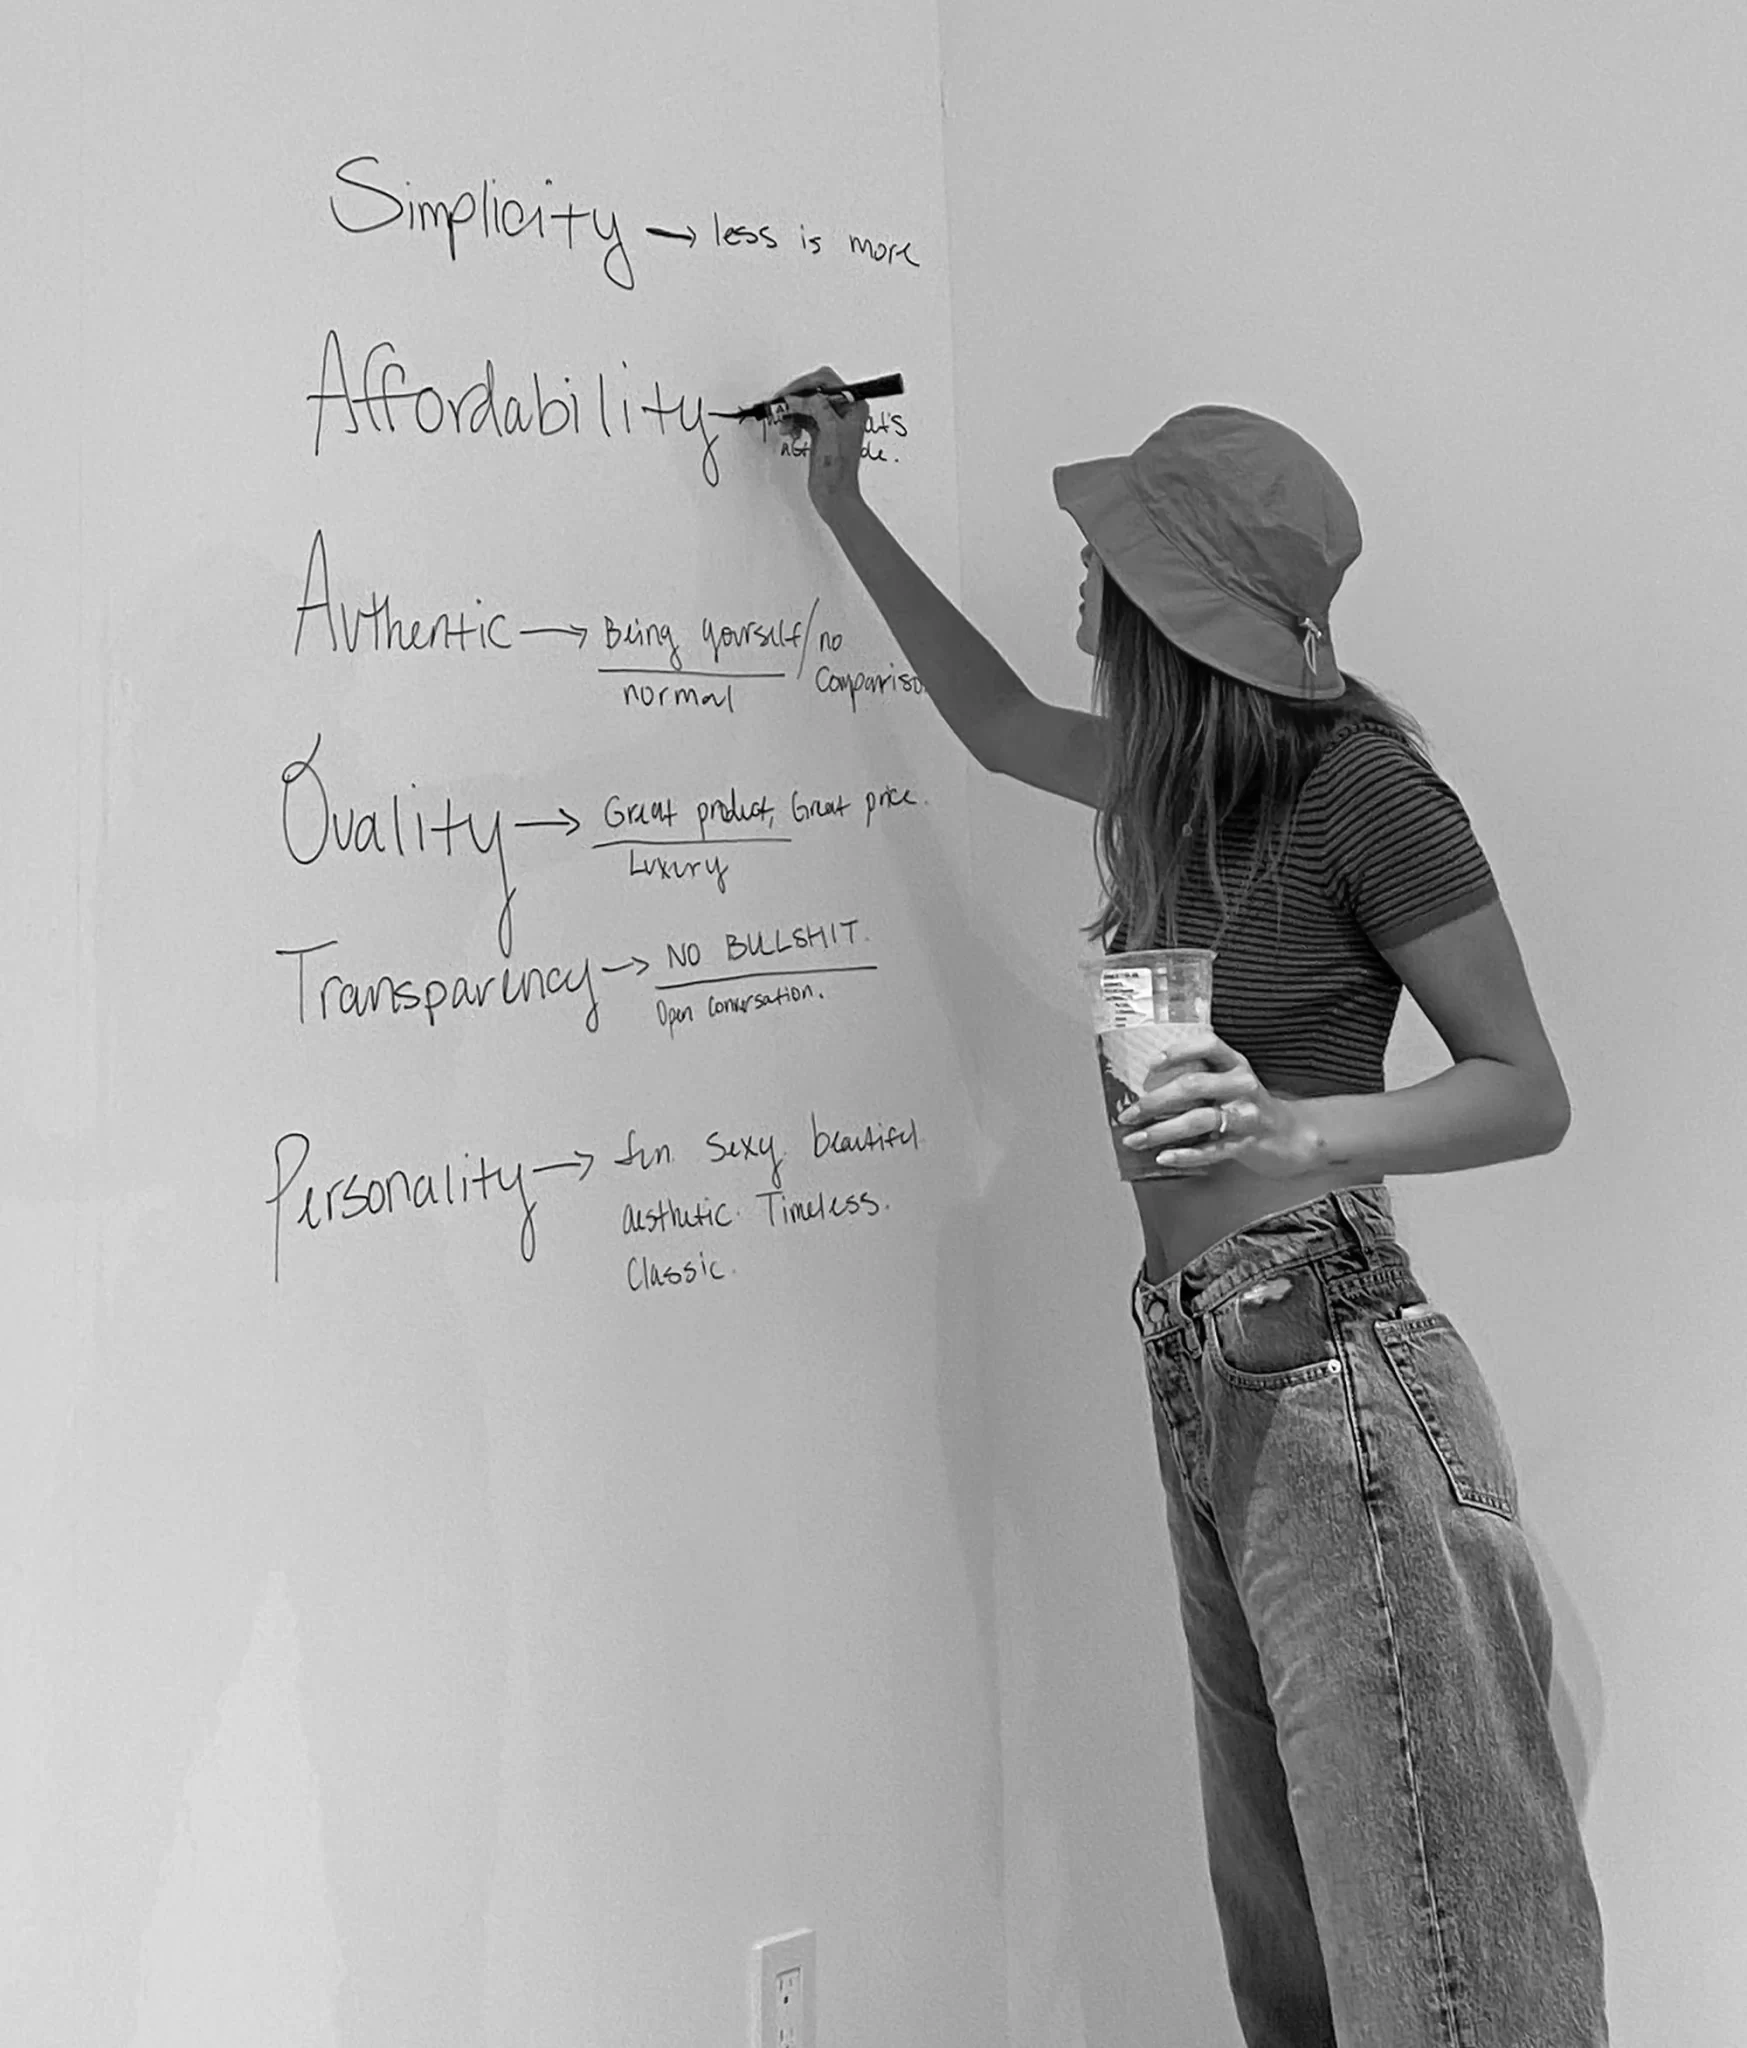 Simplicity → less is more
Affordability → at's
de.
Authentic → Being yourself / no
normal
Quality → Great product, Great price.
Luxury
Transparency → NO BULLSHIT.
Open conversation.
Personality → fun. Sexy. beautiful
aesthetic. Timeless.
Classic.